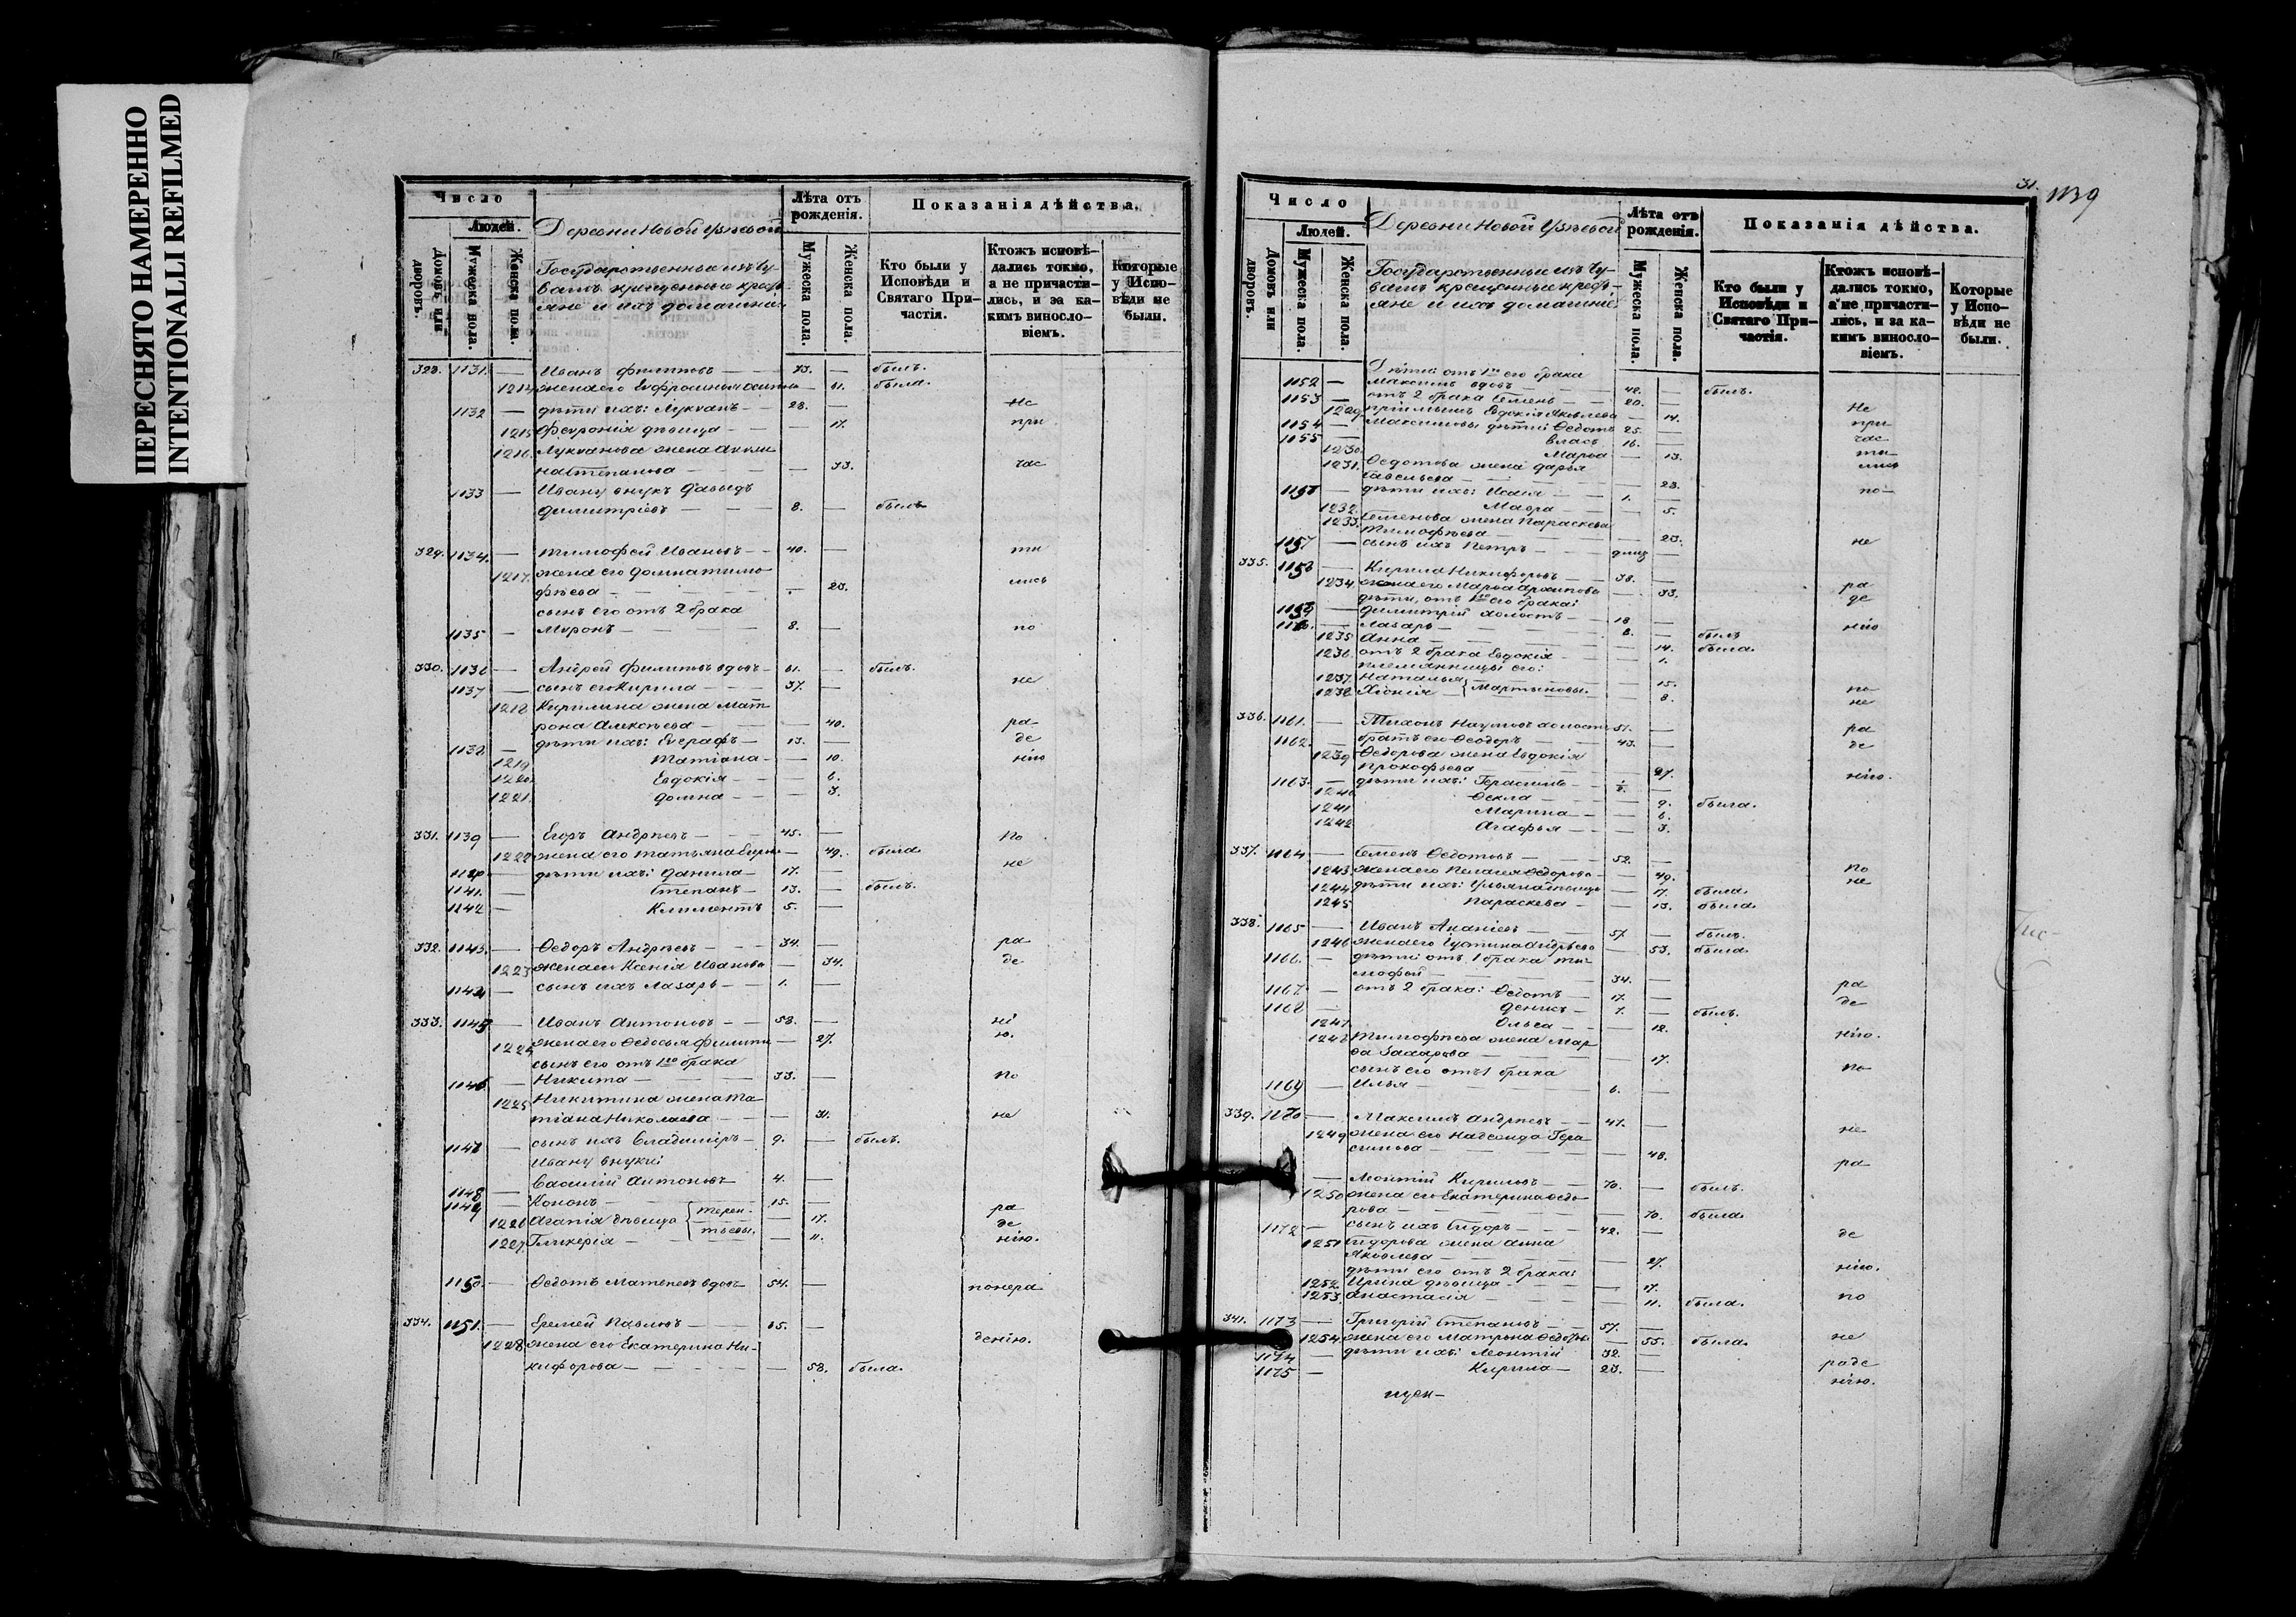 ПЕРЕСНЯТО НАМЕРЕННО
INTENTIONALLI REFILMED
Число
Людей.
Домовъ или дворовъ.
Мужеска пола.
Женска пола.
Деревни Новой
Государственные изъ Чу-
вашъ крещенные кресть-
яне и ихъ домашніе
Лѣта отъ рожденія.
Мужеска пола.
Женска пола.
Показанія дѣйства.
Кто были у Исповѣди и Святаго При-частія.
Ктожъ исповѣ-дались токмо, а не причасти-лись, и за ка-кимъ винословіемъ.
Которые у Испо-вѣди не были.
328. 1131. — Иванъ Филиповъ — 73. — былъ.
1214 жена его Евфросинья — 61. была.
1132 — дѣти ихъ: Лукианъ — 28. — Не
1215 Феврония дѣвица — — 17. при
1216. Лукианова жена Акили-
на Степанова — — 33. час
1133 — Ивану внукъ Давыдъ
Димитріевъ — 8. — былъ
329. 1134. — Тимофей Ивановъ — 40. — ти
1217. жена его Домна Тимо-
фѣева — — 23. лись
сынъ его отъ 2 брака
1135 — Миронъ — 8. — по
330. 1136 — Андрей Филиповъ вдовъ — 61. — былъ.
1137 — сынъ его Кирила — 37. — не
1218 Кирилина жена Мат-
рона Алексѣева — — 40. ра
1138 — дѣти ихъ: Евграфъ — 13. — де
1219 Татіана — — 10. нію
1220. Евдокія — — 6.
1221. Домна — — 3.
331. 1139 — Егоръ Андреевъ — 45. — По
1222 жена его Татьяна — 49. была.
1140 — дѣти ихъ: Данила — 17. — не
1141. — Степанъ — 13. — былъ.
1142 — Климентъ 5. —
332. 1143. — Ѳедоръ Андреевъ — 34. — ра
1223 жена его Ксенія Иванова — 34. де
1144 — сынъ ихъ Лазарь — 1. —
333. 1145 — Иванъ Антоновъ — 58. — ні
1224 жена его Ѳедосья Филипп. — 27. ю.
сынъ его отъ 1го брака
1146 — Никита — 33. — По
1225 Никитина жена Та-
тіана Николаева — — 31. не
1147 — сынъ ихъ Владимиръ — 9. — былъ.
Ивану внуки
1148 — Василій Антоновъ 4. —
1149 — Кононъ — 15. — ра
1226 Агапія дѣвица { Терен- — 17. де
1227. Гликерія — тьевы. — 11. нію.
1150. — Ѳедотъ Матвеевъ вдовъ 54. — понера
334. 1151. — Еремей Павловъ — 65. — денію.
1228 жена его Екатерина Ни-
кифорова — — 58. была.
31. 1139
Число
Людей.
Домовъ или дворовъ.
Мужеска пола.
Женска пола.
Деревни Новой
Государственные изъ Чу-
вашъ крещенные кресть-
яне и ихъ домашніе
Лѣта отъ рожденія.
Мужеска пола.
Женска пола.
Показанія дѣйства.
Кто были у Исповѣди и Святаго При-частія.
Ктожъ исповѣ-дались токмо, а не причасти-лись, и за ка-кимъ винословіемъ.
Которые у Испо-вѣди не были.
Дѣти отъ 1го его брака
1152 — Максимъ вдовъ — 42. — былъ.
1153 — отъ 2 брака Семенъ — 20. — Не
1229. пріимышъ Евдокія Яковлева — 14. при
1154 — Максимовы дѣти: Ѳедотъ 25. — час
1155 — Власъ 16. — ти
1230. Марья — 13. лись
1231. Ѳедотова жена Дарья
Савельева — — 23. по
1156 — дѣти ихъ: Исаія — 1. —
1232. Мавра — — 5.
1233. Семенова жена Параскева
Тимофѣева — — 23. не
1157 — сынъ ихъ Петръ —
335. 1158 — Кирила Никифоровъ — 38. — ра
1234. жена его Марья Архипова — 33. де
дѣти, отъ 1го его брака:
1159 — Димитрій холостъ — 18. — нію
1160. — Лазарь — 8. — былъ
1235 Анна — — 14. была.
1236. отъ 2 брака Евдокія — — 1.
племянницы его:
1237. Наталья — { Мартыновы. — 15. по
1238 Хіонія — — 8. не
336. 1161. — Тихонъ Наумовъ холостъ 51. — ра
1162. — братъ его Ѳеодоръ — 43. — де
1239 Ѳедорова жена Евдокія
Прокофьева — — 27. нію.
1163. — дѣти ихъ: Герасимъ —
1240. Ѳекла — — 9. была.
1241 Марина — — 6.
1242 Агафья — — 3.
337. 1164 — Семенъ Ѳедотовъ — 52. —
1243 жена его Пелагея Ѳедорова — 49. По
1244 дѣти ихъ: Ульяна дѣвица — 17. была. не
1245 Параскева — — 13. была.
338. 1165 — Иванъ Ананіевъ — 57. — былъ.
1246 жена его Устинья Андрѣева — 53. была.
1166. — дѣти отъ 1 брака Ти-
мофей — 34. — ра
1167. — отъ 2 брака: Ѳедотъ — 17. — де
1168 — Денисъ — 7. — былъ.
1247. Ольга — — 12. нію.
1248 Тимофѣева жена Мар-
ѳа Захарова — — 17. по
сынъ его отъ 1 брака
1169 — Илья — 6. —
339. 1170 — Максимъ Андреевъ — 47. — не
1249 жена его Надежда Гера-
симова — — 48. ра
— Леонтій Кириловъ — 70. — былъ.
1250 жена его Екатерина Ѳедо-
рова — — 70. была.
1172 — сынъ ихъ Сидоръ — 42. — де
1251 Сидорова жена Анна
Яковлева — — 27. нію.
дѣти его отъ 2 брака:
1252. Ирина дѣвица — — 17. по
1253. Анастасія — — 11. была.
341. 1173 — Григорій Степановъ — 57. — не
1254. жена его Матрона Ѳедор. — 55. была.
1174 — дѣти ихъ: Леонтій 32. — раде
1175 — Кирила — 23. — нію.